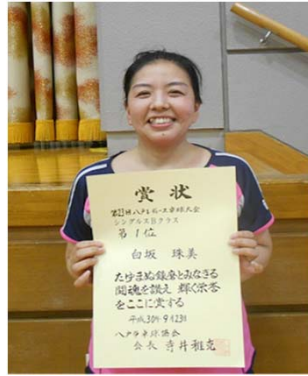 賞状
第23回八千代レディース卓球大会
シングルスBクラス
第1位
白坂 珠美
たゆまぬ錬磨とみなぎる
闘魂を讃え 輝く栄誉
をここに賞する
平成30年9月23日
八千代卓球協会
会長 寺井雅克